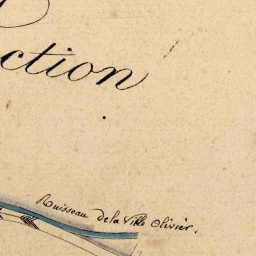 ction
Ruisseau de la Ville Olivier.